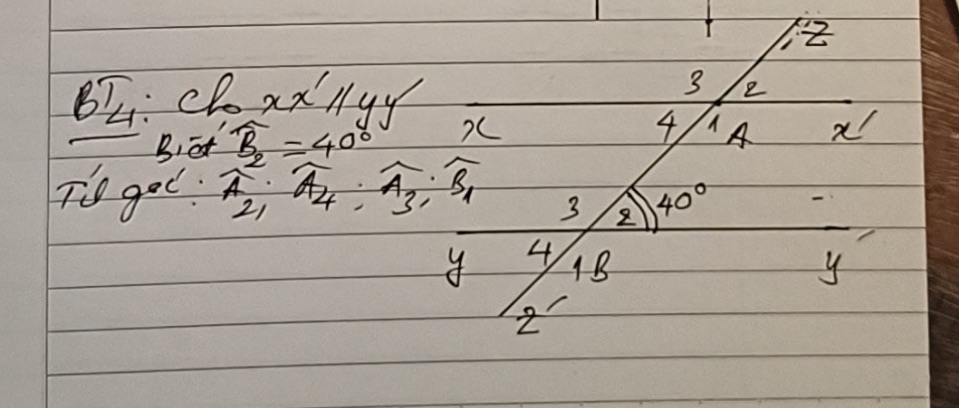 BT4: Cho xx' // yy'
Biết B̂₂ = 40°
Tíh góc: Â₂; Â₄; Â₃; B̂₁
z
3 2
x 4 1 A x'
3 2 40°
y 4 1 B y'
z'